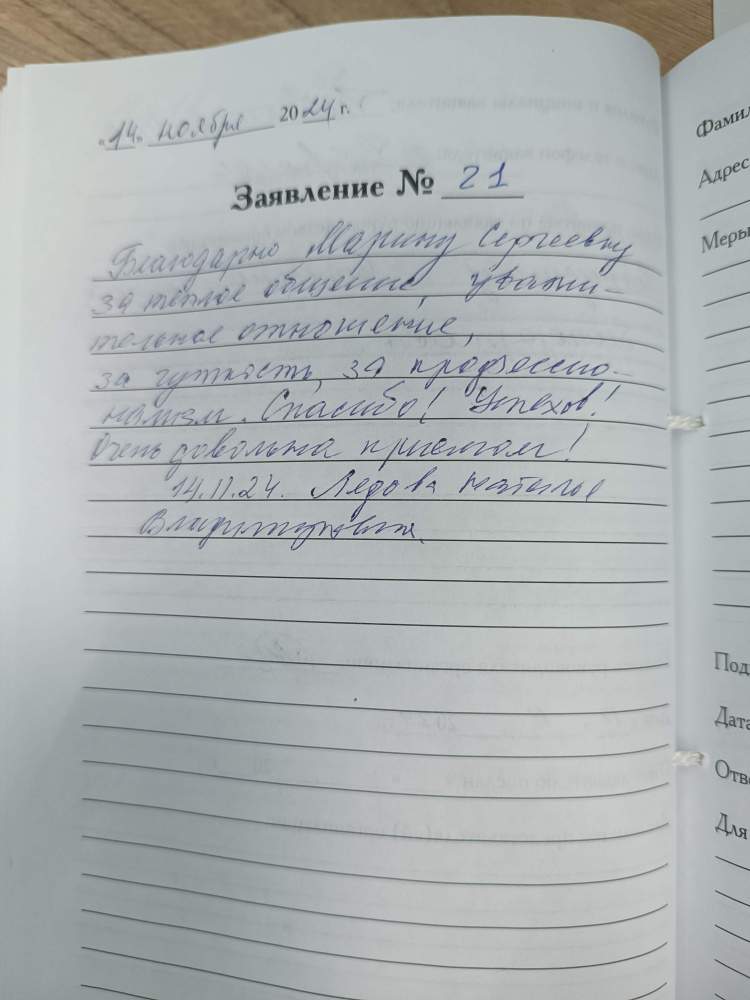 «14» ноября 2024 г.
Заявление № 21
Благодарю Марину Сергеевну
за теплое общение, уважи-
тельное отношение,
за чуткость, за профессио-
нализм. Спасибо! Успехов!
Очень довольна приемом!
14.11.24. Ледова Наталья
Владимировна
Фамил
Адрес
Меры
Под
Дата
Отве
Для